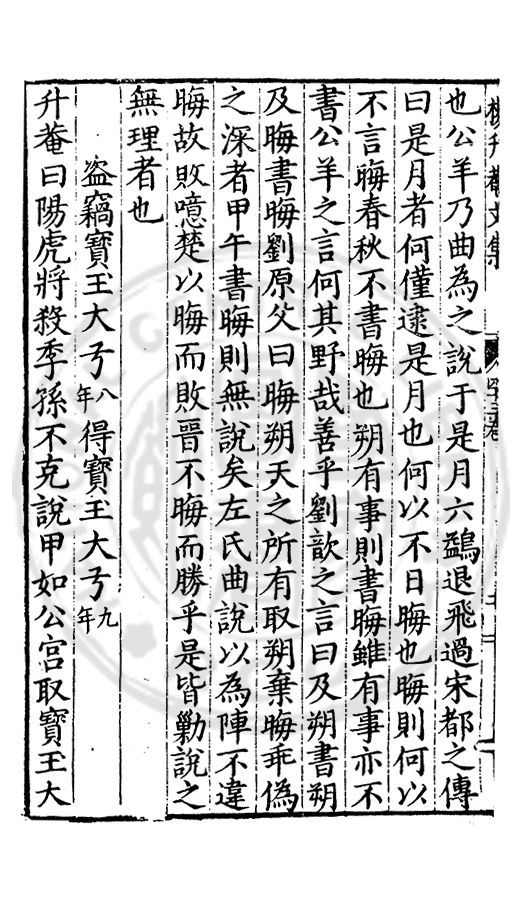 楊升菴文集
四十三卷
也公羊乃曲為之說于是月六鷁退飛過宋都之傳
曰是月者何僅逮是月也何以不日晦也晦則何以
不言晦春秋不書晦也朔有事則書晦雖有事亦不
書公羊之言何其野哉善乎劉歆之言曰及朔書朔
及晦書晦劉原父曰晦朔天之所有取朔棄晦乖偽
之深者甲午書晦則無說矣左氏曲說以為陣不違
晦故敗噫楚以晦而敗晉不晦而勝乎是皆勦說之
無理者也
盗竊寶玉大弓八年得寶玉大弓九年
升菴曰陽虎將殺季孫不克說甲如公宮取寶玉大